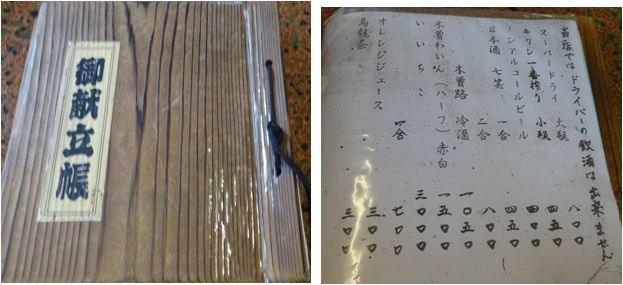 御献立帳
当店ではドライバーの飲酒は出来ません
スーパードライ 大瓶 八〇〇
キリン一番搾り 小瓶 四五〇
ノンアルコールビール 四〇〇
日本酒 七笑 一合 四五〇
二合 八〇〇
木曽路 冷酒 一〇五〇
木曽わいん(ハーフ)赤白 一五〇〇
いいちこ 三〇〇〇
一合 七〇〇
オレンジジュース 三〇〇
烏龍茶 三〇〇